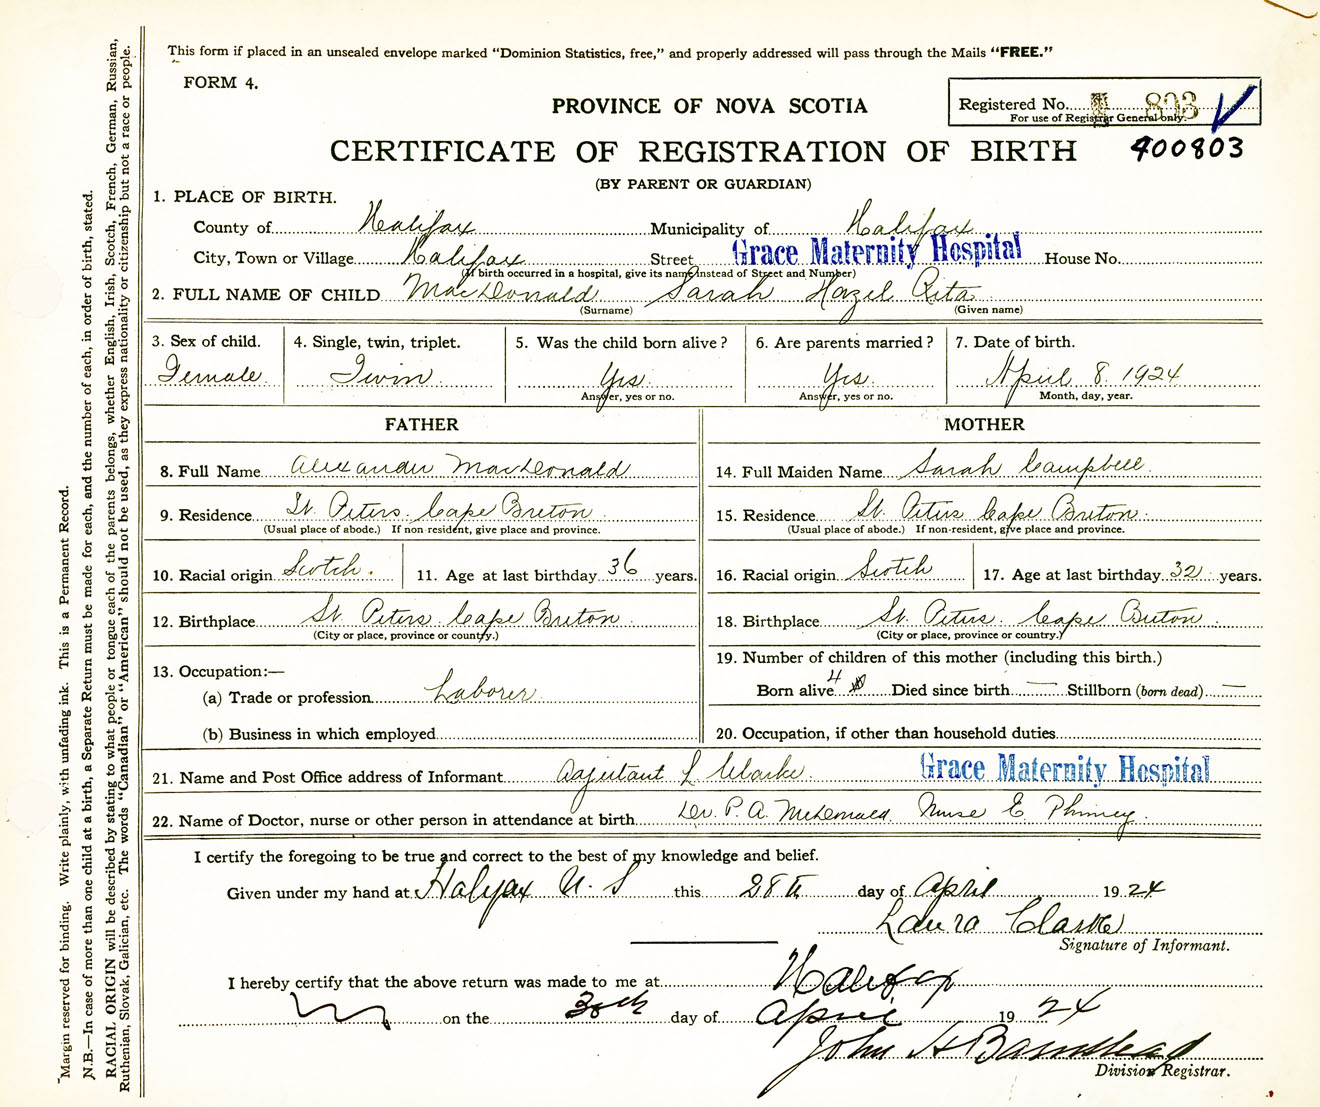 This form if placed in an unsealed envelope marked “Dominion Statistics, free,” and properly addressed will pass through the Mails “FREE.”
FORM 4.
PROVINCE OF NOVA SCOTIA
Registered No. 803
For use of Registrar General only.
CERTIFICATE OF REGISTRATION OF BIRTH
400803
(BY PARENT OR GUARDIAN)
1. PLACE OF BIRTH.
County of Halifax Municipality of Halifax
City, Town or Village Halifax Street Grace Maternity Hospital House No.
(If birth occurred in a hospital, give its name instead of Street and Number)
2. FULL NAME OF CHILD MacDonald Sarah Hazel Rita
(Surname) (Given name)
3. Sex of child. 4. Single, twin, triplet. 5. Was the child born alive? 6. Are parents married? 7. Date of birth.
Female Twin Yes. Yes. April 8. 1924
Answer, yes or no. Answer, yes or no. Month, day, year.
FATHER MOTHER
8. Full Name Alexander MacDonald 14. Full Maiden Name Sarah Campbell
9. Residence St. Peters. Cape Breton 15. Residence St. Peters Cape Breton
(Usual place of abode.) If non-resident, give place and province. (Usual place of abode.) If non-resident, give place and province.
10. Racial origin Scotch. 11. Age at last birthday 36 years. 16. Racial origin Scotch 17. Age at last birthday 32 years.
12. Birthplace St. Peters Cape Breton 18. Birthplace St. Peters. Cape Breton
(City or place, province or country.) (City or place, province or country.)
13. Occupation:— 19. Number of children of this mother (including this birth.)
(a) Trade or profession Laborer Born alive 4 Died since birth — Stillborn (born dead) —
(b) Business in which employed 20. Occupation, if other than household duties
21. Name and Post Office address of Informant Adjutant L Clarke. Grace Maternity Hospital
22. Name of Doctor, nurse or other person in attendance at birth Dr. P. A. McDonald Nurse E Phinney.
I certify the foregoing to be true and correct to the best of my knowledge and belief.
Given under my hand at Halifax N. S this 28th day of April 1924
Laura Clarke
Signature of Informant.
I hereby certify that the above return was made to me at Halifax
on the 30th day of April 1924
John H Barnstead
Division Registrar.
Margin reserved for binding. Write plainly, with unfading ink. This is a Permanent Record.
N.B.—In case of more than one child at a birth, a Separate Return must be made for each, and the number of each, in order of birth, stated.
RACIAL ORIGIN will be described by stating to what people or tongue each of the parents belongs, whether English, Irish, Scotch, French, German, Russian,
Ruthenian, Slovak, Galician, etc. The words “Canadian” or “American” should not be used, as they express nationality or citizenship but not a race or people.